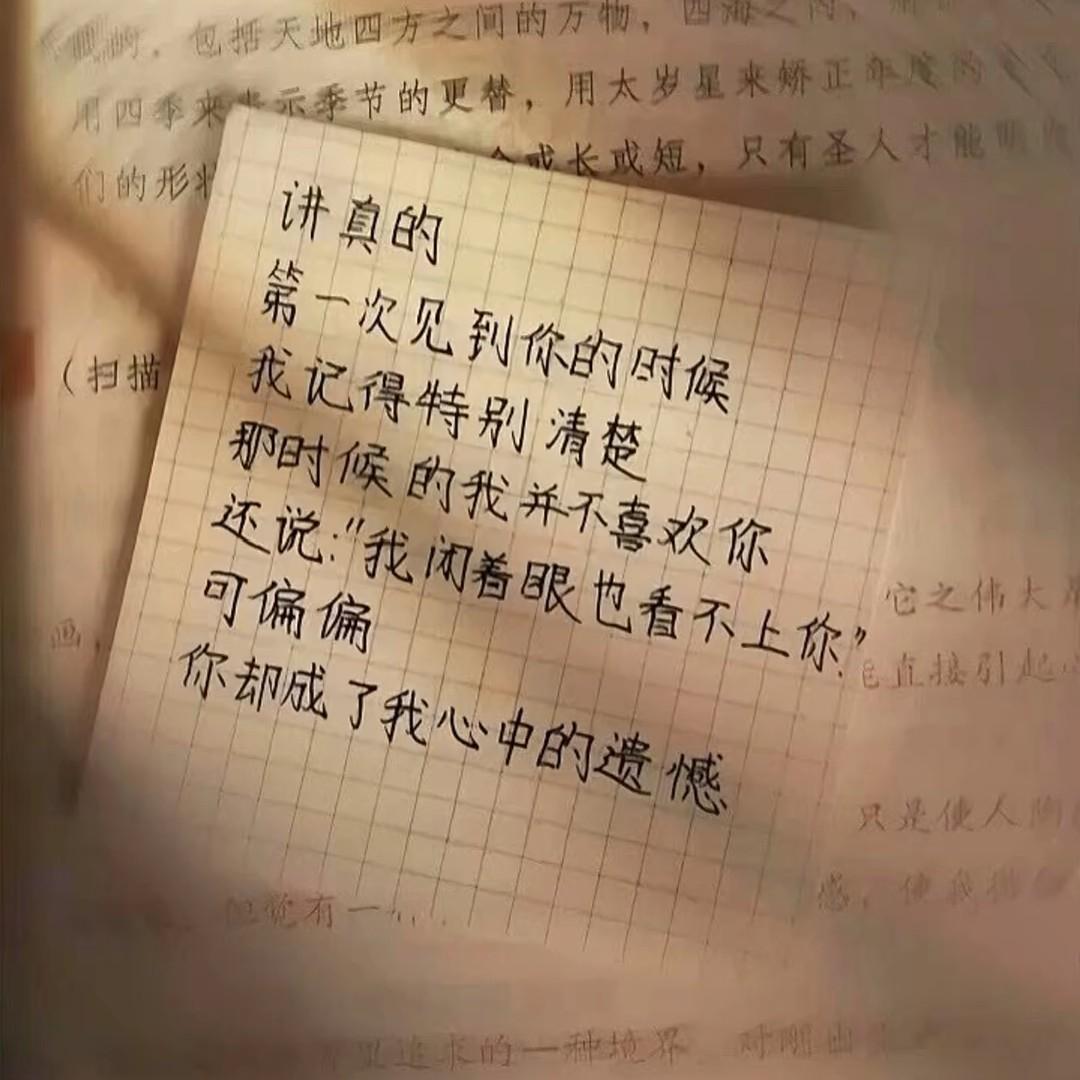 包括天地四方之间的万物，四海之内，
用四季来表示季节的更替，用太岁星来矫正年度的
们的形状
或长或短，只有圣人才能明
讲真的
第一次见到你的时候
我记得特别清楚
（扫描
那时候的我并不喜欢你
还说："我闭着眼也看不上你"
可偏偏
你却成了我心中的遗憾
它之伟大
画，
直接引起
只是使人陶
感，使我
觉有一
追求的一种境界